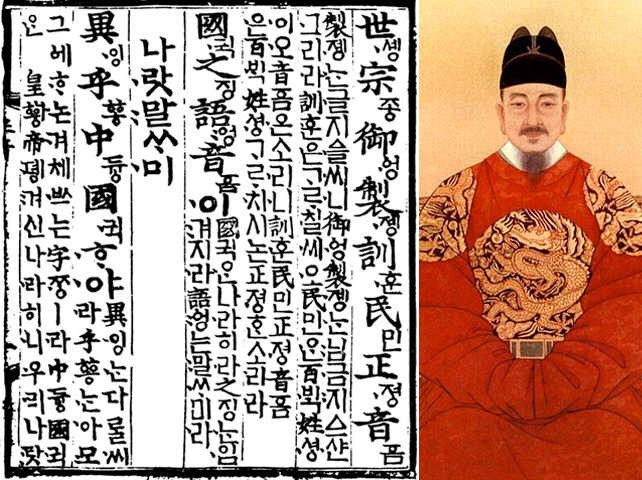 世솅宗종御엉製졩訓훈民민正졍音ᅙᅳᆷ
製졩ᄂᆞᆫ글지ᅀᅳᆯ씨니御엉製졩ᄂᆞᆫ님금지ᅀᅳ샨
그리라訓훈은ᄀᆞᄅᆞ칠씨오民민ᄋᆞᆫ百ᄇᆡᆨ姓셩
이오音ᅙᅳᆷ은소리니訓훈民민正졍音ᅙᅳᆷ
은百ᄇᆡᆨ姓셩ᄀᆞᄅᆞ치시논正졍ᄒᆞᆫ소리라
國귁之징語엉音ᅙᅳᆷ이
國귁ᄋᆞᆫ나라히라之징ᄂᆞᆫ입
겨지라語엉는말ᄊᆞ미라
나랏말ᄊᆞ미
異잉乎ᅘᅩᆼ中듀ᇰ國귁ᄒᆞ야
異잉ᄂᆞᆫ다ᄅᆞᆯ씨
라乎ᅘᅩᆼᄂᆞᆫ아모
그ᅌᅦᄒᆞ논겨체ᄡᅳ는字ᄍᆞᆼㅣ라中듀ᇰ國귁
ᄋᆞᆫ皇ᅘᅪᇰ帝뎽겨신나라히니우리나랏